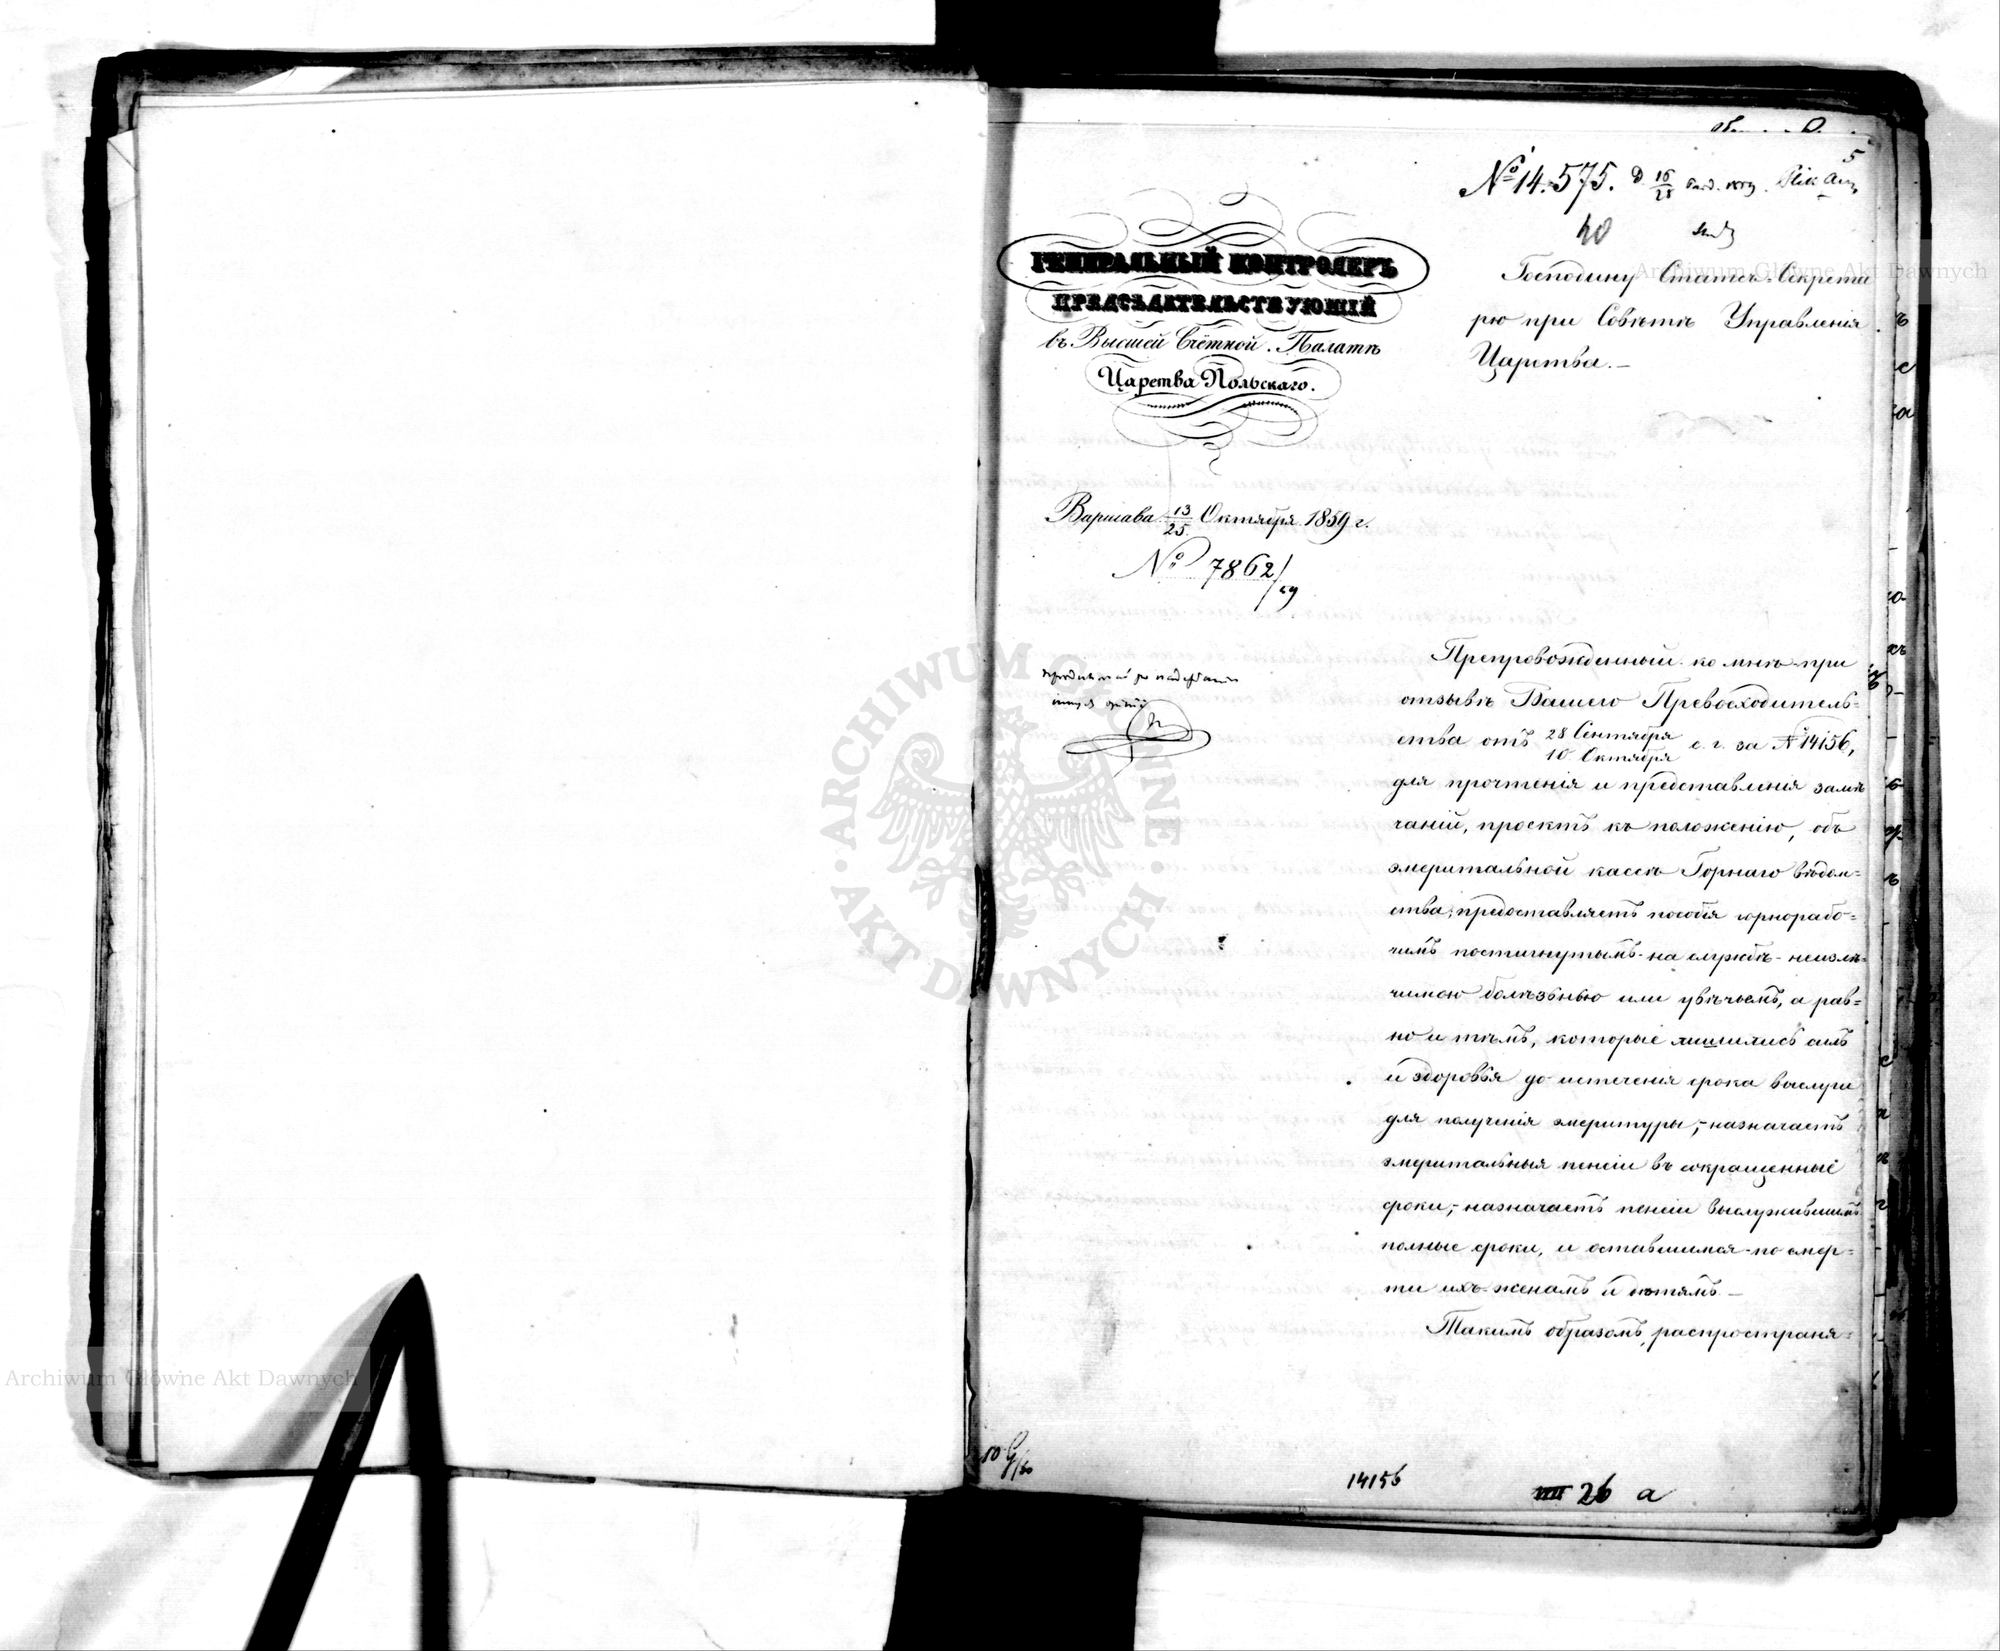 5
№ 14.575. D. 16/28
40
ГЕНЕРАЛЬНЫЙ КОНТРОЛЕРЪ
ПРЕДСѢДАТЕЛЬСТВУЮЩІЙ
въ Высшей Счётной Палатѣ
Царства Польскаго.
Господину Статсъ-Секрета
рю при Совѣтѣ Управленія
Царства.—
Варшава 13/25 Октября 1859 г.
№ 7862/59
Препровожденный ко мнѣ при
отзывѣ Вашего Превосходитель=
ства отъ 28 Сентября/10 Октября с. г. за № 14156,
для прочтенія и представленія замѣ
чаній, проектъ къ положенію, объ
эмеритальной кассѣ Горнаго вѣдом=
ства, предоставляетъ пособія горнорабо=
чимъ постигнутымъ на службѣ неизлѣ=
чимою болѣзнью или увѣчьемъ, а рав=
но и тѣмъ, которые лишились силъ
и здоровья до истеченія срока выслуги
для полученія эмеритуры,- назначаетъ
эмеритальныя пенсіи въ сокращенные
сроки,- назначаетъ пенсіи выслужившимъ
полные сроки, и оставшимся по смер=
ти ихъ женамъ и дѣтямъ.—
Такимъ образомъ, распространя=
14156
26 a
ARCHIWUM GŁÓWNE AKT DAWNYCH
Archiwum Główne Akt Dawnych
Archiwum Główne Akt Dawnych